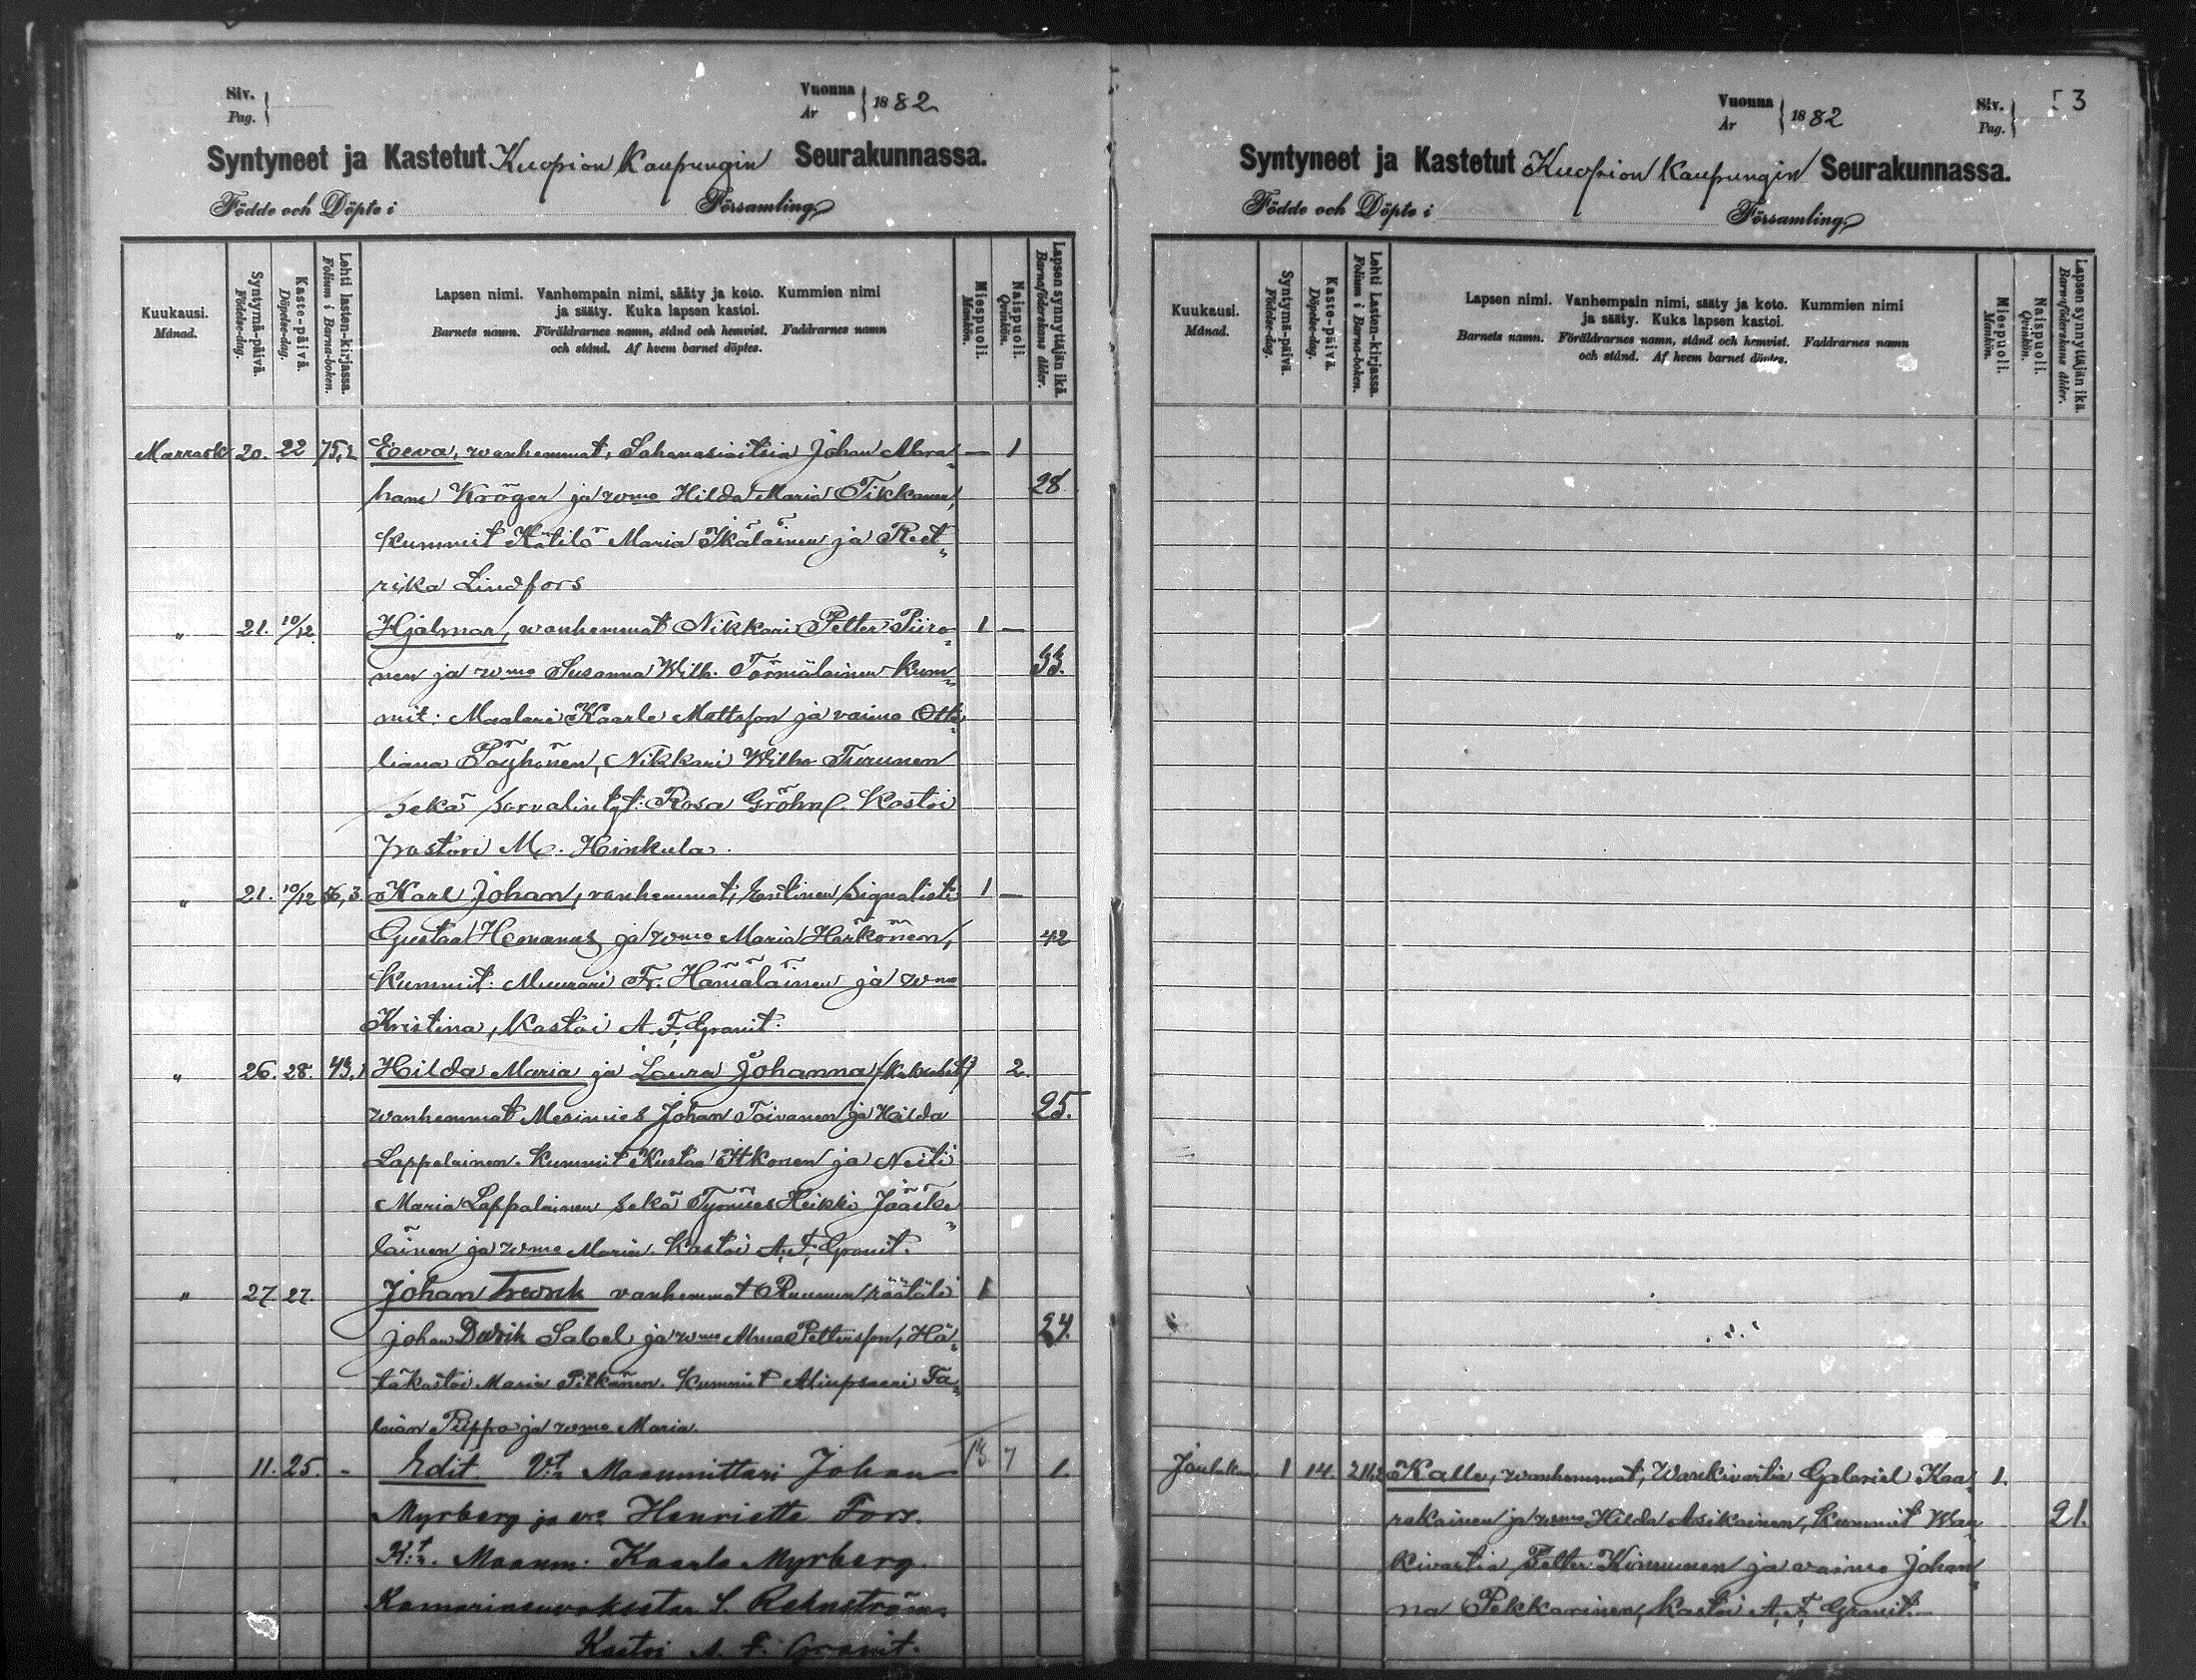 Siv.
Pag.
Vuonna
År
1882
Syntyneet ja Kastetut Kuopion Kaupungin Seurakunnassa.
Födde och Döpte i Församling.
Kuukausi.
Månad.
Syntymä-päivä.
Födelse-dag.
Kaste-päivä.
Döpelse-dag.
Lehti lasten-kirjassa.
Folium i Barna-boken.
Lapsen nimi. Vanhempain nimi, sääty ja koto. Kummien nimi
ja sääty. Kuka lapsen kastoi.
Barnets namn. Föräldrarnes namn, stånd och hemvist. Faddrarnes namn
och stånd. Af hvem barnet döptes.
Miespuoli.
Mankön.
Naispuoli.
Qvinkön.
Lapsen synnyttäjän ikä.
Barnaföderskans ålder.
Marrask 20. 22 75,2 Eeva, wanhemmat, Johan Abra — 1
ham Kröger ja wmo Hilda Maria Tikkanen, 28
Kummit Kätilö Maria Ikäläinen ja Reet
rika Lindfors
" 21. 10/12. Hjalmar, wanhemmat Nikkari Petter Piiro 1 —
nen ja wmo Susanna Wilh. Törmäläinen Kum 33.
mit: Maalari Kaarle Mattsson ja vaimo Otti
liana Pöyhönen, Nikkari Wilh. Turunen
sekä Rosa Gröhn. Kastoi
pastori M. Hinkula.
" 21. 10/12 56,3 Karl Johan, vanhemmat, Entinen Signalisti 1 —
Gustaa Hemanus ja wmo Maria Härkönen, 42
Kummit: Muurari Fr. Hämäläinen ja wmo
Kristina, Kastoi A. F. Granit.
" 26. 28. 43,1 Hilda Maria ja Laura Johanna 2.
wanhemmat Merimies Johan Toivanen ja Hilda 25.
Lappalainen. Kummit Kustaa Itkonen ja Neiti
Maria Lappalainen sekä Työmies Heikki Jääske
läinen ja wmo Maria. Kastoi A. F. Granit.
" 27. 27. Johan Fredrik vanhemmat Ruunun räätäli 1
Johan Sabel ja wmo Alma Pettersson, Hä 24.
täkastoi Maria Pitkänen. Kummit Aliupseeri Ta
Piippo ja wmo Maria.
" 11. 25. - Edit V:t Maanmittari Johan 13 7 1.
Myrberg ja vo Henriette Fors.
K:t. Maanm: Kaarlo Myrberg.
S. Rehnström.
Kastoi A. F. Granit.
Vuonna
År
1882
Siv.
Pag.
53
Syntyneet ja Kastetut Kuopion Kaupungin Seurakunnassa.
Födde och Döpte i Församling.
Kuukausi.
Månad.
Syntymä-päivä.
Födelse-dag.
Kaste-päivä.
Döpelse-dag.
Lehti Lasten-kirjassa.
Folium i Barna-boken.
Lapsen nimi. Vanhempain nimi, sääty ja koto. Kummien nimi
ja sääty. Kuka lapsen kastoi.
Barnets namn. Föräldrarnes namn, stånd och hemvist. Faddrarnes namn
och stånd. Af hvem barnet döptes.
Miespuoli.
Mankön.
Naispuoli.
Qvinkön.
Lapsen synnyttäjän ikä.
Barnaföderskans ålder.
Jouluk. 1 14. Kalle, wanhemmat, Wankivartia Gabriel Kaa 1.
rakainen ja wmo Hilda Asikainen, Kummit Wan 21.
kivartia Petter Kinnunen ja vaimo Johan
na Pekkarinen, Kastoi A. F. Granit.